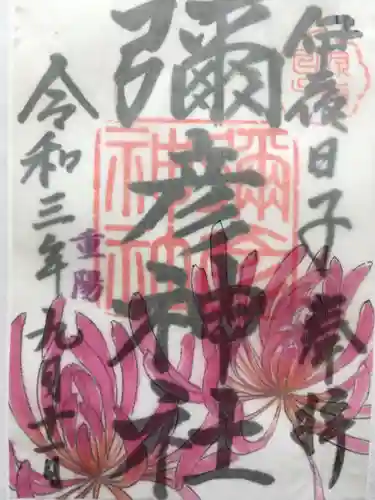 伊夜日子 奉拝
彌彦神社
重陽
令和三年九月十一日